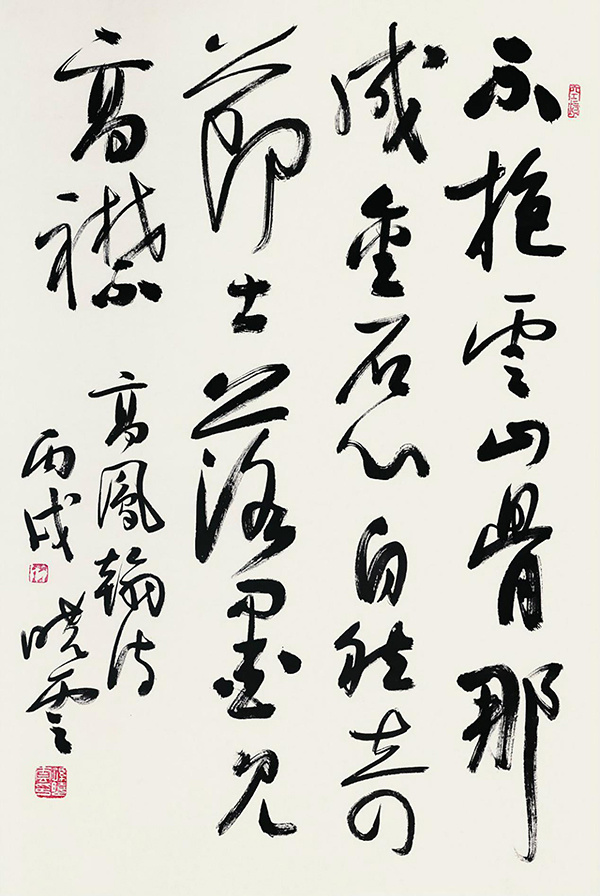 不抱雲山骨那
成金石心自然奇
節士落墨見
高襟
高鳳翰詩
丙戌 曉雲